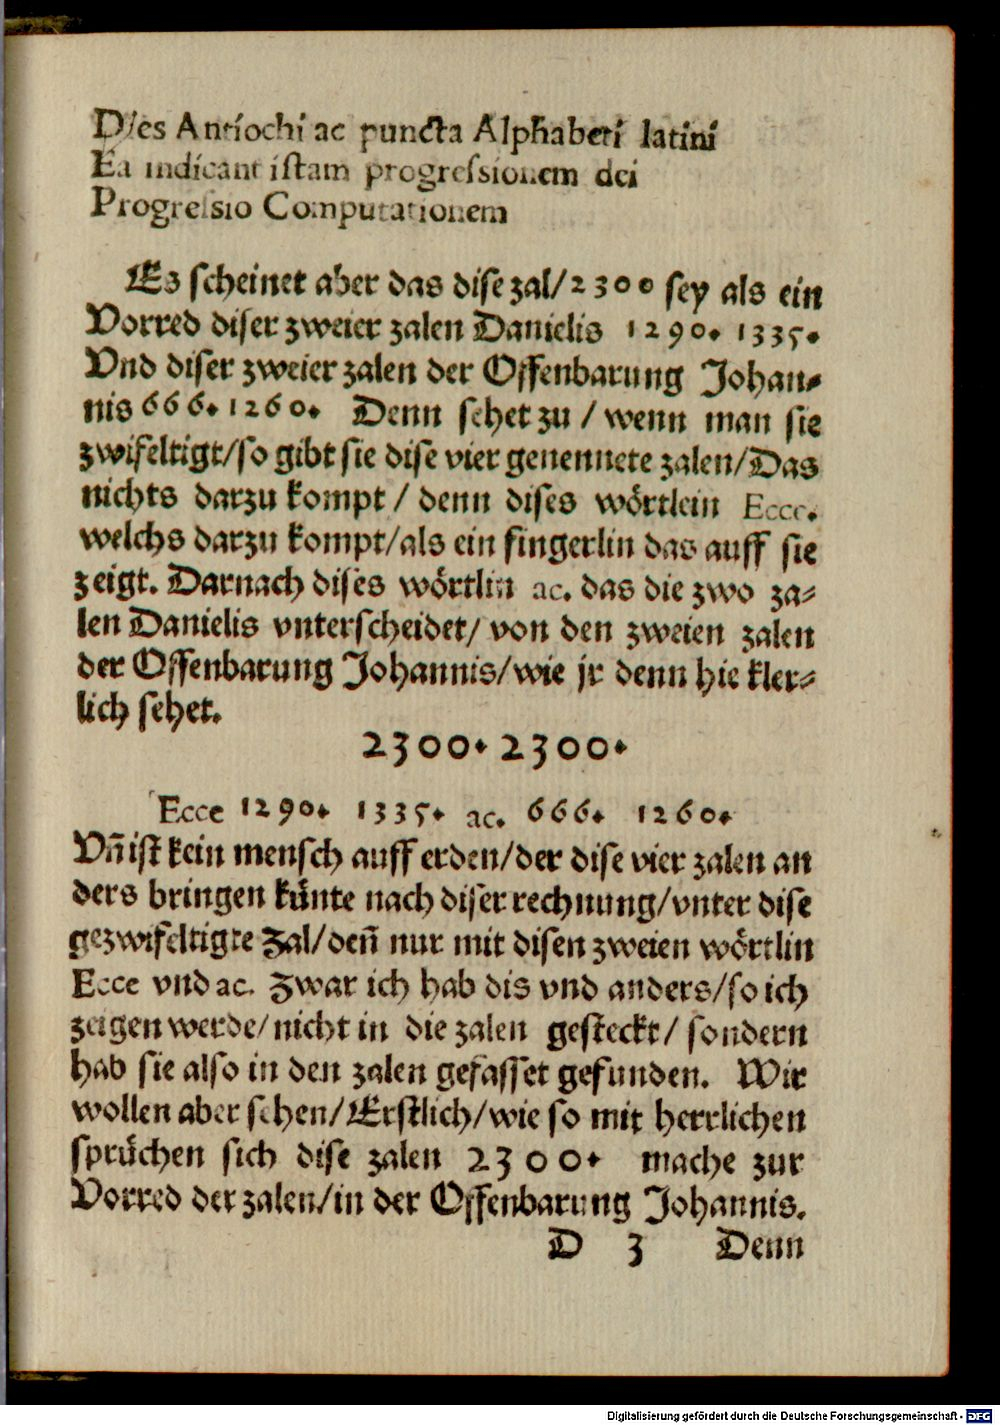 Dies Antiochi ac puncta Alphabeti latini
Ea indicant istam progressionem dei
Progressio Computationem
Es scheinet aber das dise zal/2300 sey als ein
Vorred diser zweier zalen Danielis 1290. 1335.
Vnd diser zweier zalen der Offenbarung Johan-
nis 666. 1260. Denn sehet zu / wenn man sie
zwifeltigt/so gibt sie dise vier genennete zalen/Das
nichts darzu kompt / denn dises wörtlein Ecce.
welchs darzu kompt/als ein fingerlin das auff sie
zeigt. Darnach dises wörtlin ac. das die zwo za-
len Danielis vnterscheidet/ von den zweien zalen
der Offenbarung Johannis/wie jr denn hie kler-
lich sehet.
2300. 2300.
Ecce 1290. 1335. ac. 666. 1260.
Vñ ist kein mensch auff erden/der dise vier zalen an
ders bringen künte nach diser rechnung/vnter dise
gezwifeltigte Zal/deñ nur mit disen zweien wörtlin
Ecce vnd ac. Zwar ich hab dis vnd anders/so ich
zeigen werde/nicht in die zalen gesteckt/ sondern
hab sie also in den zalen gefasset gefunden. Wir
wollen aber sehen/Erstlich/wie so mit herrlichen
sprüchen sich dise zalen 2300. mache zur
Vorred der zalen/in der Offenbarung Johannis.
D 3 Denn
Digitalisierung gefördert durch die Deutsche Forschungsgemeinschaft - DFG